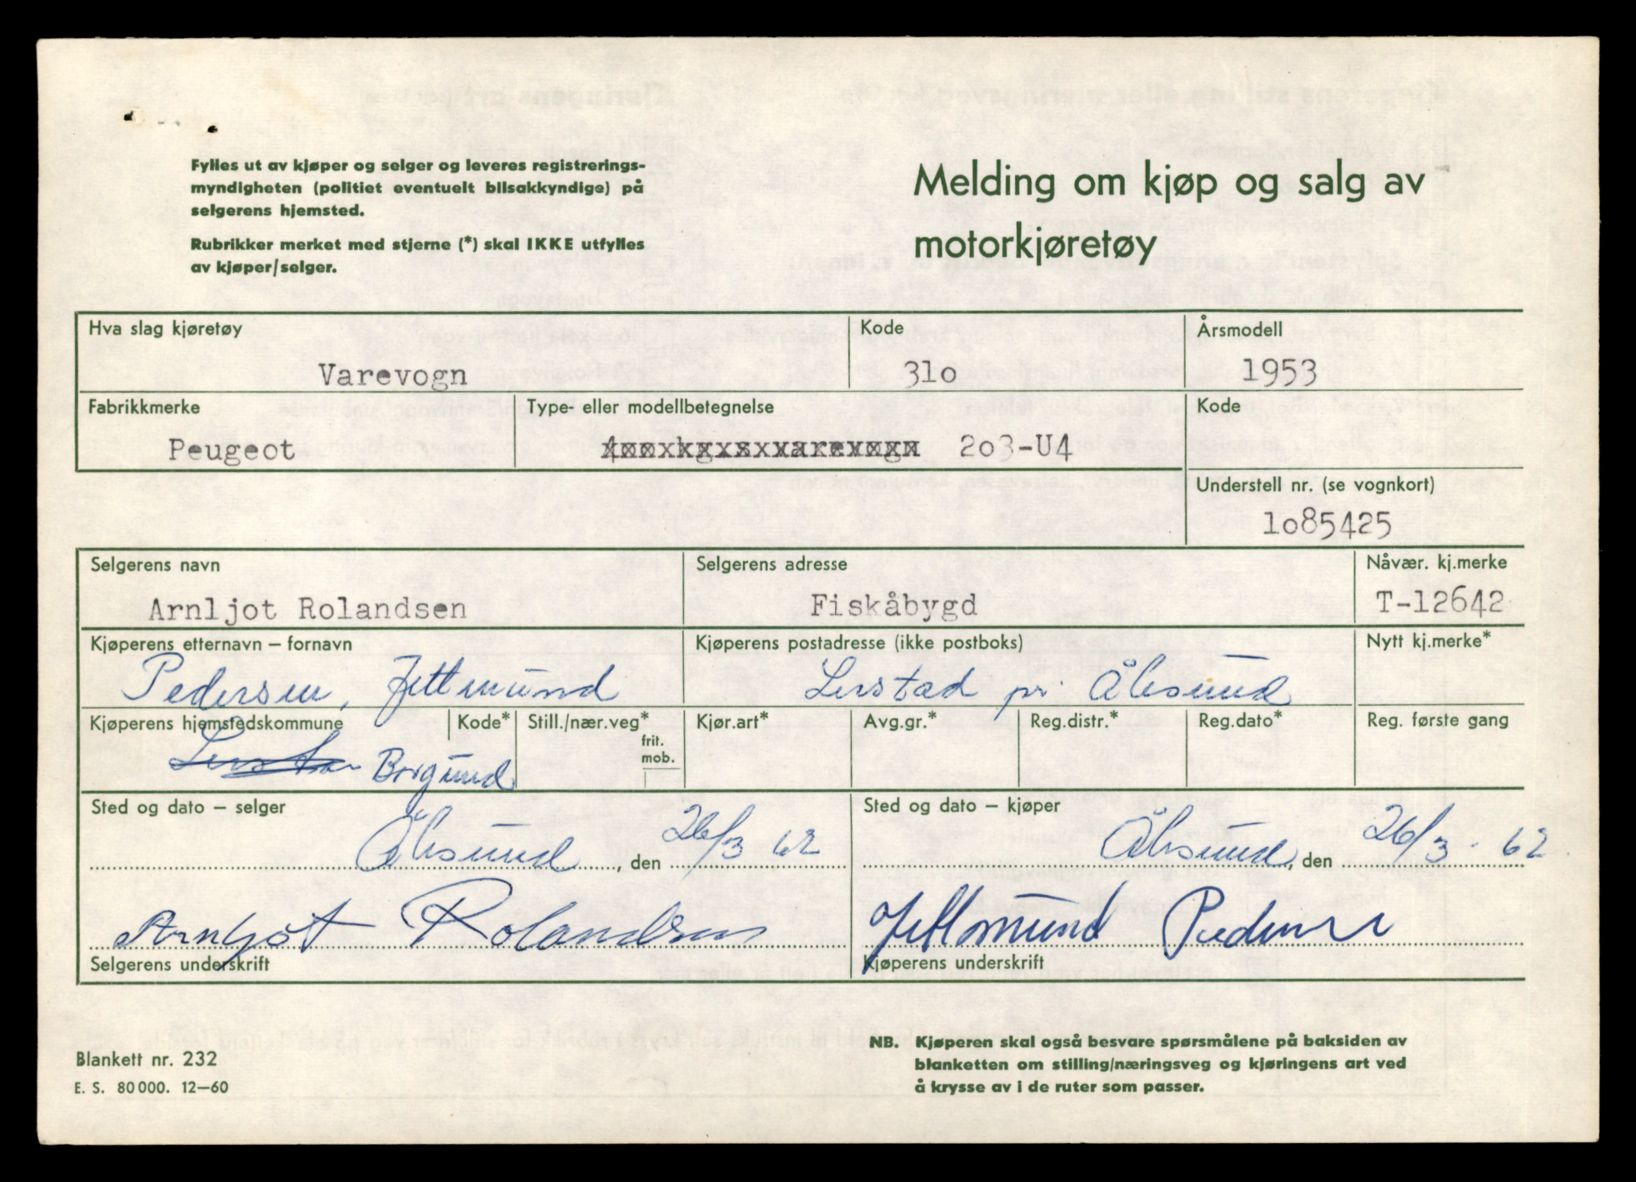 Fylles ut av kjøper og selger og leveres registrerings-
myndigheten (politiet eventuelt bilsakkyndige) på
selgerens hjemsted.
Rubrikker merket med stjerne (*) skal IKKE utfylles
av kjøper/selger.
Melding om kjøp og salg av
motorkjøretøy
Hva slag kjøretøy
Varevogn
Kode
31o
Årsmodell
1953
Fabrikkmerke
Peugeot
Type- eller modellbetegnelse
2o3-U4
Kode
Understell nr. (se vognkort)
1o85425
Selgerens navn
Arnljot Rolandsen
Selgerens adresse
Fiskåbygd
Nåvær. kj.merke
T-12642
Kjøperens etternavn – fornavn
Pedersen, Jettmund
Kjøperens postadresse (ikke postboks)
Lerstad pr. Ålesund
Nytt kj.merke*
Kjøperens hjemstedskommune
Borgund
Kode*
Still./nær.veg*
frit.
mob.
Kjør.art*
Avg.gr.*
Reg.distr.*
Reg.dato*
Reg. første gang
Sted og dato – selger
Ålesund, den 26/3 62
Sted og dato – kjøper
Ålesund, den 26/3 - 62
Arnljot Rolandsen
Selgerens underskrift
Jettmund Pedersen
Kjøperens underskrift
Blankett nr. 232
E. S. 80 000. 12–60
NB. Kjøperen skal også besvare spørsmålene på baksiden av
blanketten om stilling/næringsveg og kjøringens art ved
å krysse av i de ruter som passer.